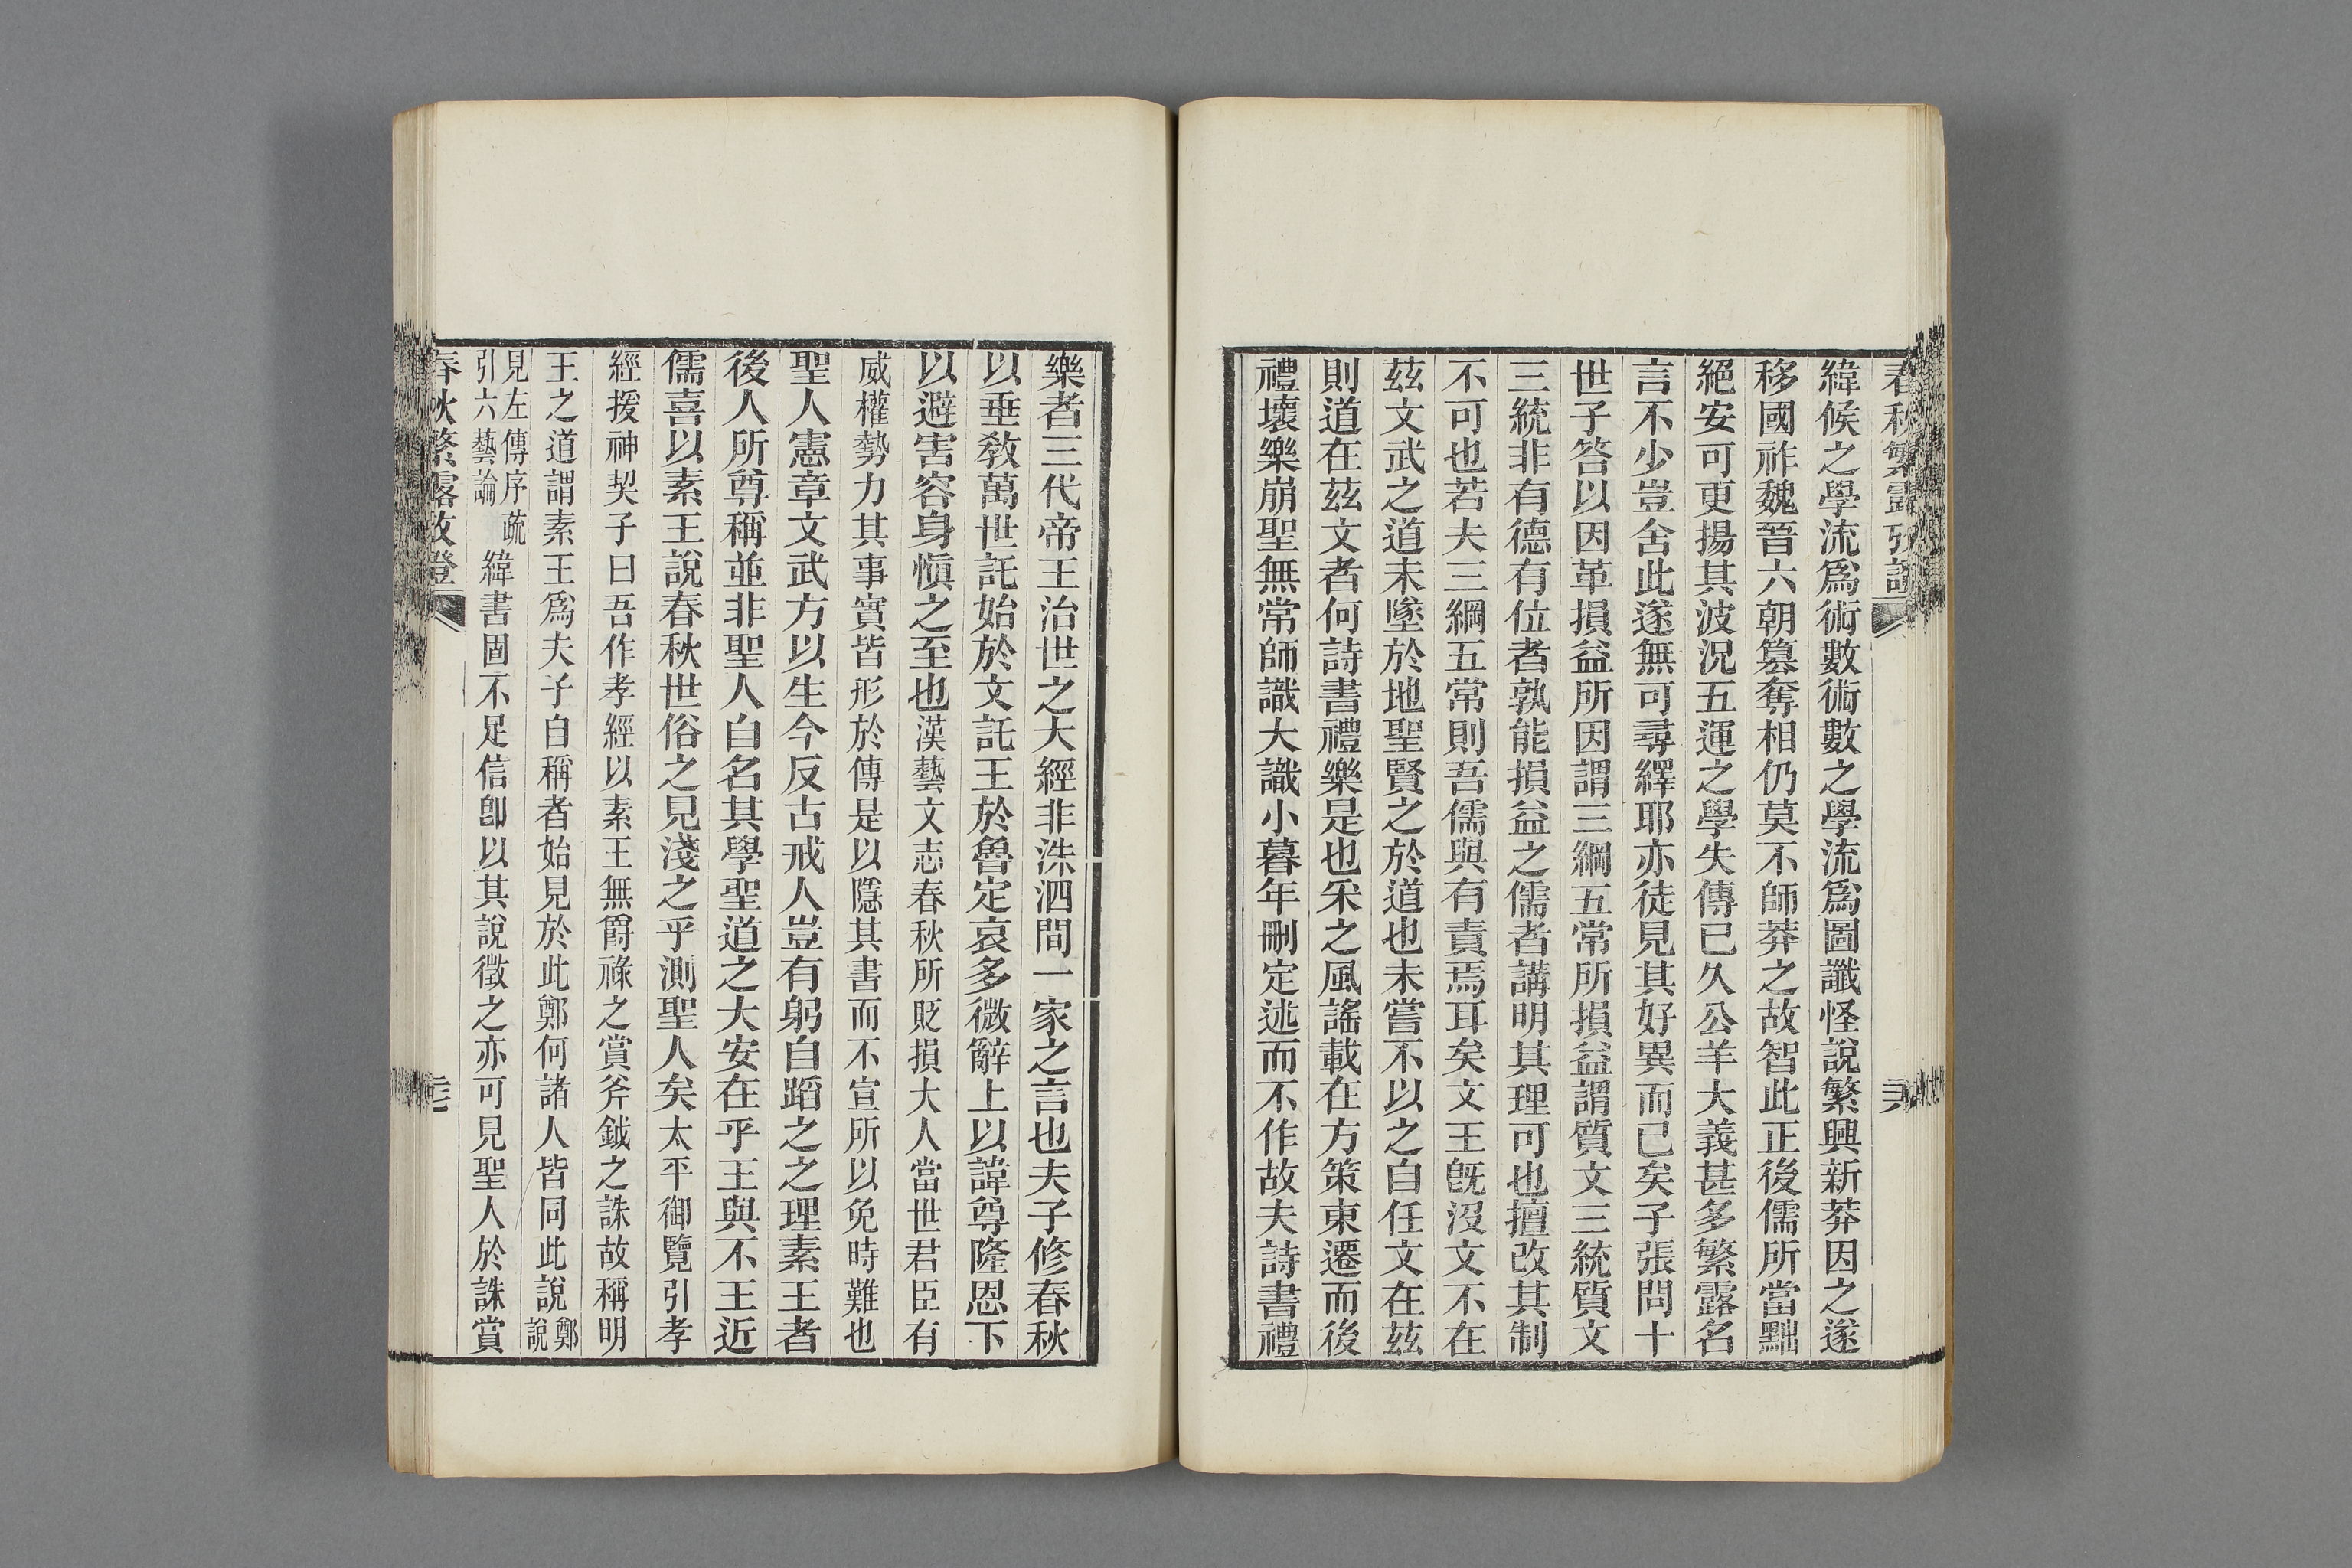 春秋繁露攷證
緯候之學流爲術數術數之學流爲圖讖怪說繁興新莽因之遂
移國祚魏晉六朝篡奪相仍莫不師莽之故智此正後儒所當黜
絕安可更揚其波況五運之學失傳已久公羊大義甚多繁露名
言不少豈舍此遂無可尋繹耶亦徒見其好異而已矣子張問十
世子答以因革損益所因謂三綱五常所損益謂質文三統質文
三統非有德有位者孰能損益之儒者講明其理可也擅改其制
不可也若夫三綱五常則吾儒與有責焉耳矣文王旣沒文不在
茲文武之道未墜於地聖賢之於道也未嘗不以之自任文在茲
則道在茲文者何詩書禮樂是也釆之風謠載在方策東遷而後
禮壞樂崩聖無常師識大識小暮年刪定述而不作故夫詩書禮
樂者三代帝王治世之大經非洙泗間一家之言也夫子修春秋
以垂敎萬世託始於文託王於魯定哀多微辭上以諱尊隆恩下
以避害容身愼之至也漢藝文志春秋所貶損大人當世君臣有
威權勢力其事實皆形於傳是以隱其書而不宣所以免時難也
聖人憲章文武方以生今反古戒人豈有躬自蹈之之理素王者
後人所尊稱並非聖人自名其學聖道之大安在乎王與不王近
儒喜以素王說春秋世俗之見淺之乎測聖人矣太平御覽引孝
經援神契子曰吾作孝經以素王無爵祿之賞斧鉞之誅故稱明
王之道謂素王爲夫子自稱者始見於此鄭何諸人皆同此說鄭說
見左傳序疏引六藝論緯書固不足信卽以其說徵之亦可見聖人於誅賞
春秋繁露攷證